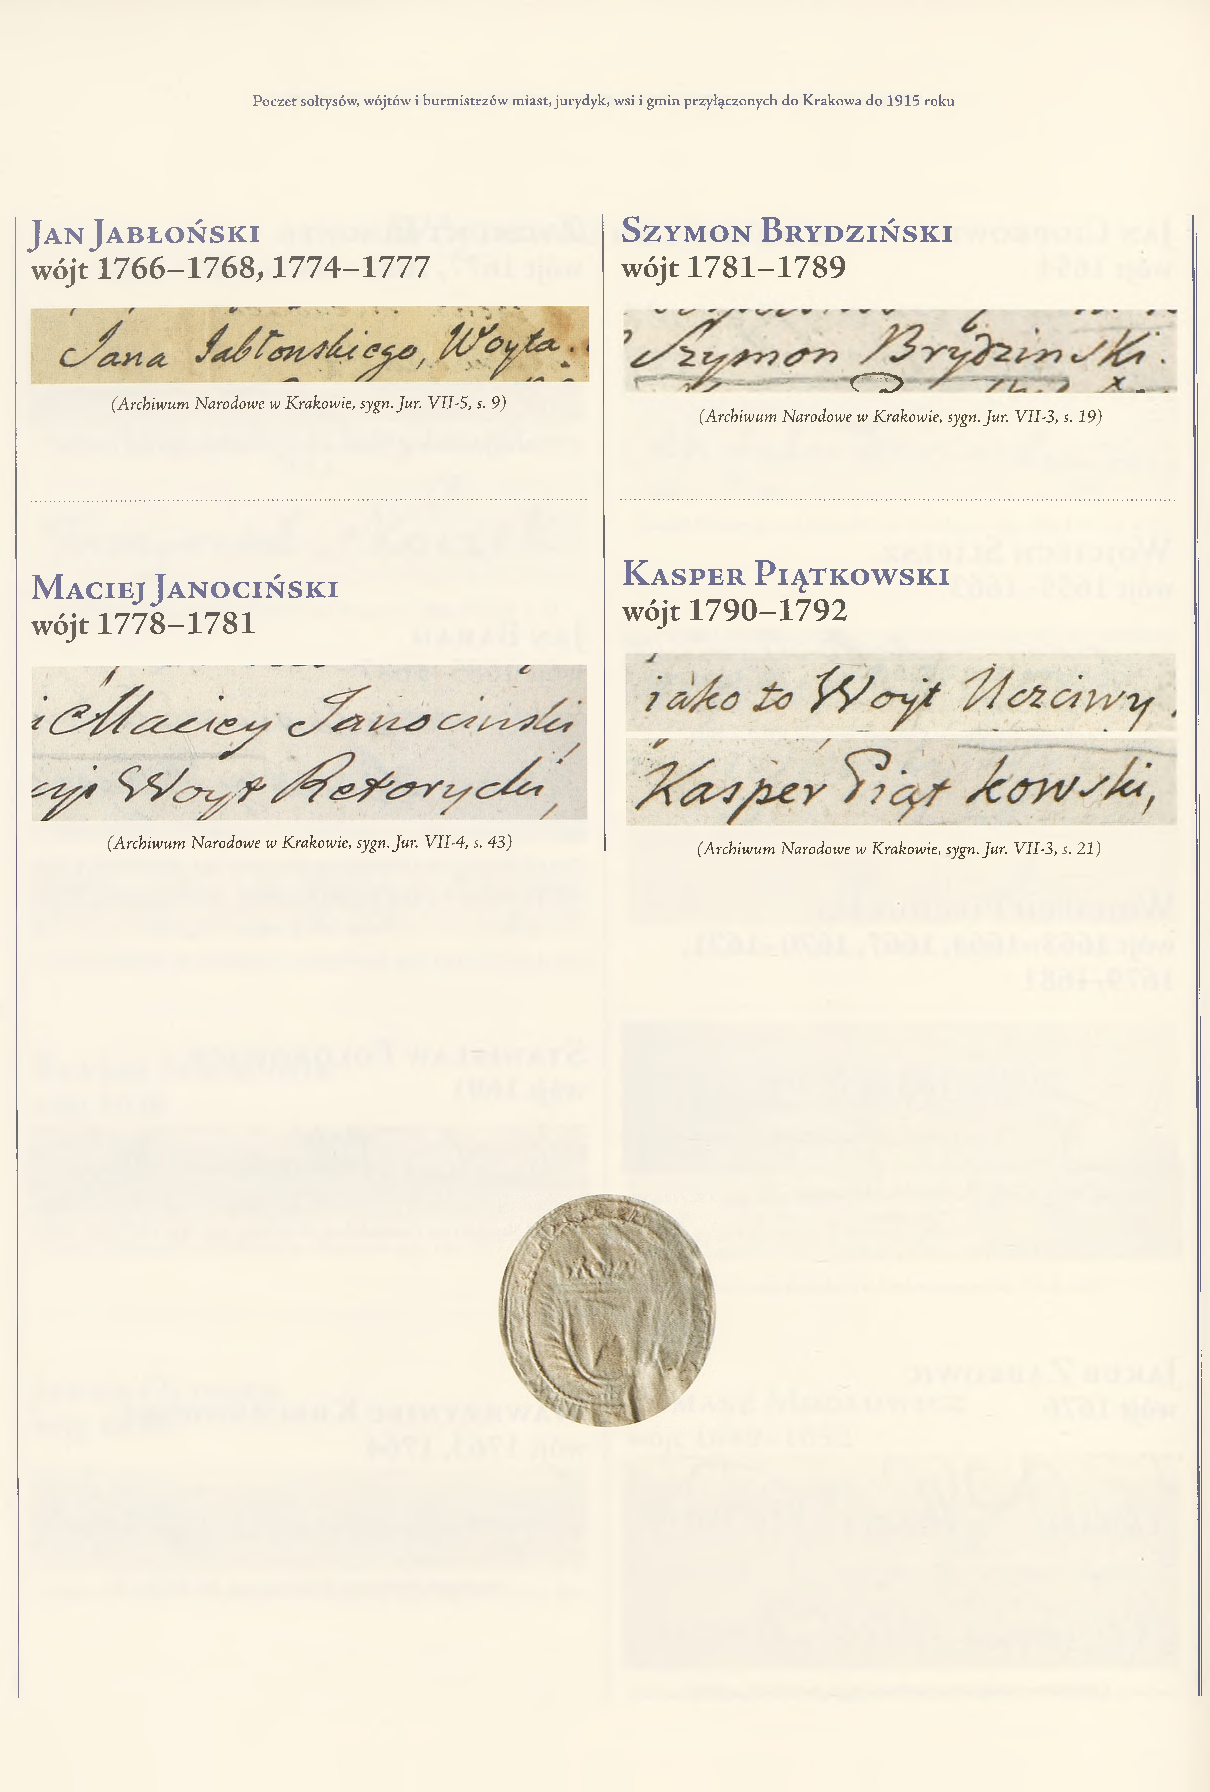 Poczet sołtysów, wójtów i burmistrzów miast, jurydyk, wsi i gmin przyłączonych do Krakowa do 1915 roku
Jan Jabłoński
wójt 1766–1768, 1774–1777
Jana Jabłonskiego, Woyta.
(Archiwum Narodowe w Krakowie, sygn. Jur. VII-5, s. 9)
Maciej Janociński
wójt 1778–1781
i Maciey Janocinski
Woyt Retorycki,
(Archiwum Narodowe w Krakowie, sygn. Jur. VII-4, s. 43)
Szymon Brydziński
wójt 1781–1789
Szymon Brydzinski.
(Archiwum Narodowe w Krakowie, sygn. Jur. VII-3, s. 19)
Kasper Piątkowski
wójt 1790–1792
iako to Woyt Uczciwy
Kasper Piątkowski,
(Archiwum Narodowe w Krakowie, sygn. Jur. VII-3, s. 21)